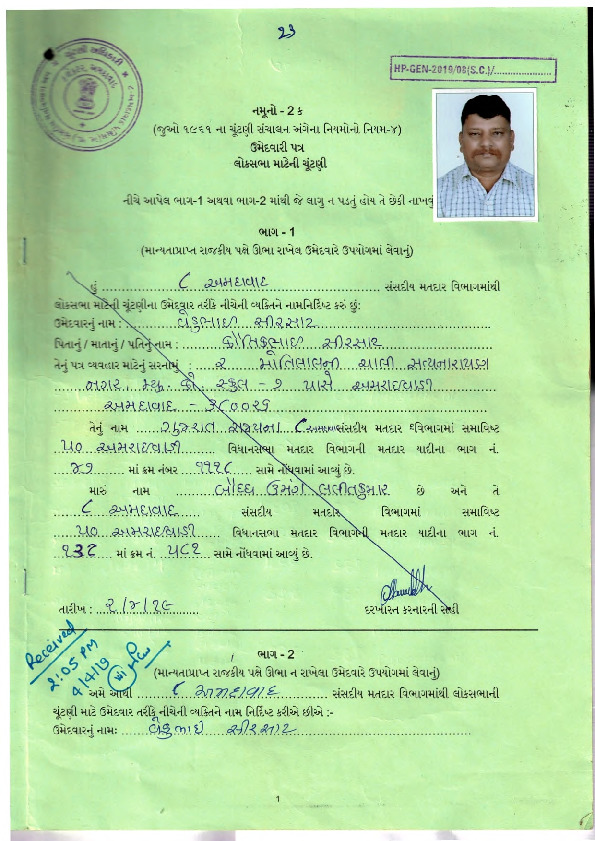 23
HP-GEN-2019/08(S.C.)/
નમૂનો - 2 ક
(જુઓ ૧૯૬૧ ના ચૂંટણી સંચાલન અંગેના નિયમોનો નિયમ-૪)
ઉમેદવારી પત્ર
લોકસભા માટેની ચૂંટણી
નીચે આપેલ ભાગ-1 અથવા ભાગ-2 માંથી જે લાગુ ન પડતું હોય તે છેકી નાખવું
ભાગ - 1
(માન્યતાપ્રાપ્ત રાજકીય પક્ષે ઊભા રાખેલ ઉમેદવારે ઉપયોગમાં લેવાનું)
હું ૮ અમદાવાદ સંસદીય મતદાર વિભાગમાંથી
લોકસભા માટેની ચૂંટણીના ઉમેદવાર તરીકે નીચેની વ્યક્તિને નામનિર્દિષ્ટ કરું છું:
ઉમેદવારનું નામ : સીરસાટ
પિતાનું / માતાનું / પતિનું નામ : સીરસાટ
તેનું પત્ર વ્યવહાર માટેનું સરનામું : ૨ મોતિલાલની ચાલી સત્યનારાયણ
નગર મ્યુ. સ્કુલ - ૭ પાસે અમરાઈવાડી
અમદાવાદ - ૩૮૦૦૨૬
તેનું નામ ગુજરાત રાજ્યના ૮ સંસદીય મતદાર વિભાગમાં સમાવિષ્ટ
૫૦ અમરાઈવાડી વિધાનસભા મતદાર વિભાગની મતદાર યાદીના ભાગ નં.
૪૭ માં ક્રમ નંબર ૧૧૧૮ સામે નોંધવામાં આવ્યું છે.
મારું નામ બૌધ્ધ ઉમંગ લલીતકુમાર છે અને તે
૮ અમદાવાદ સંસદીય મતદાર વિભાગમાં સમાવિષ્ટ
૫૦ અમરાઈવાડી વિધાનસભા મતદાર વિભાગની મતદાર યાદીના ભાગ નં.
૧૩૮ માં ક્રમ નં. ૫૮૧ સામે નોંધવામાં આવ્યું છે.
તારીખ : ૨/૪/૧૯ દરખાસ્ત કરનારની સહી
Received
2:05 PM
4/4/19
ભાગ - 2
(માન્યતાપ્રાપ્ત રાજકીય પક્ષે ઊભા ન રાખેલા ઉમેદવારે ઉપયોગમાં લેવાનું)
અમે આથી ૮ અમદાવાદ સંસદીય મતદાર વિભાગમાંથી લોકસભાની
ચૂંટણી માટે ઉમેદવાર તરીકે નીચેની વ્યક્તિને નામ નિર્દિષ્ટ કરીએ છીએ :-
ઉમેદવારનું નામઃ સીરસાટ
1